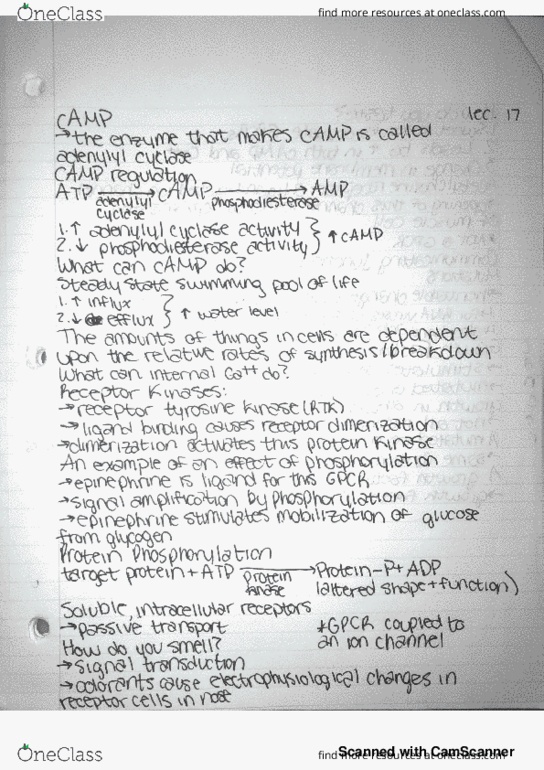 OneClass
find more resources at oneclass.com
lec. 17
cAMP
→ the enzyme that makes cAMP is called
adenylyl cyclase
cAMP regulation
ATP → cAMP → AMP
adenylyl cyclase
phosphodiesterase
1. ↑ adenylyl cyclase activity
2. ↓ phosphodiesterase activity } ↑ cAMP
What can cAMP do?
Steady state swimming pool of life
1. ↑ influx
2. ↓ efflux } ↑ water level
The amounts of things in cells are dependent
upon the relative rates of synthesis/breakdown
What can internal Ca++ do?
Receptor Kinases:
→ receptor tyrosine kinase (RTK)
→ ligand binding causes receptor dimerization
→ dimerization activates this protein kinase
An example of an effect of phosphorylation
→ epinephrine is ligand for this GPCR
→ signal amplification by phosphorylation
→ epinephrine stimulates mobilization of glucose
from glycogen
Protein Phosphorylation
target protein + ATP → Protein-P + ADP
protein kinase
(altered shape + function)
Soluble, intracellular receptors
→ passive transport
*GPCR coupled to
an ion channel
How do you smell?
→ signal transduction
→ odorants cause electrophysiological changes in
receptor cells in nose
OneClass
find more resources at oneclass.com
Scanned with CamScanner